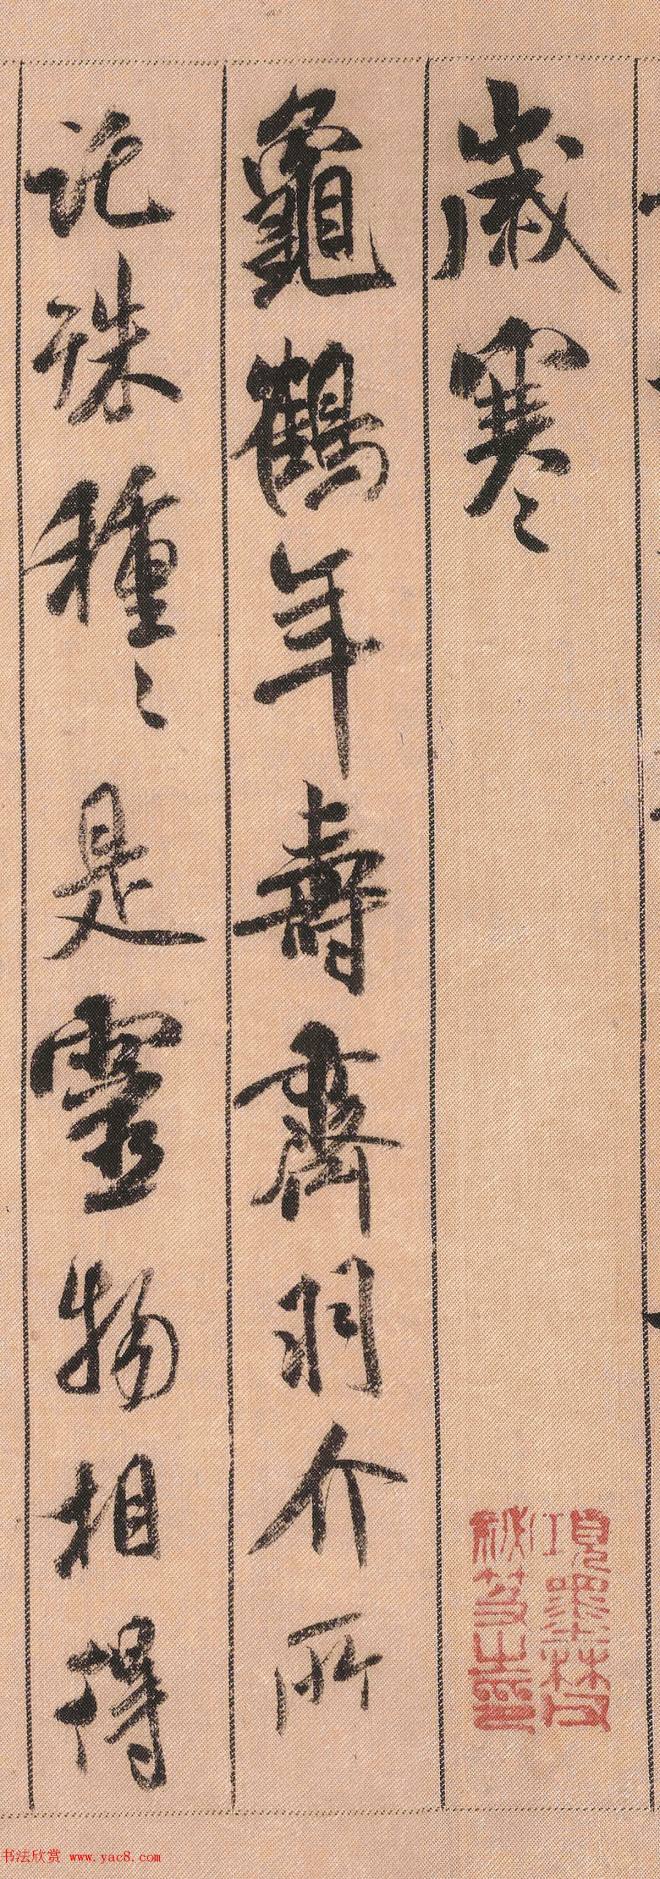 歲寒
龜鶴年壽齊羽介所
託殊種〻是靈物相得
項墨林父
秘笈之印
书法欣赏 www.yac8.com